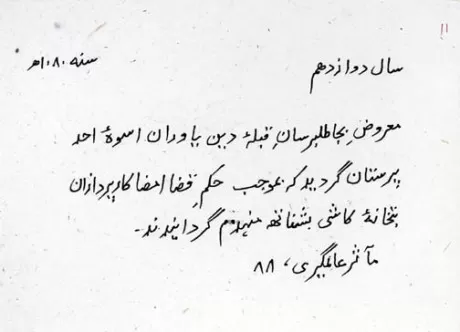 ۱۱
سال دوازدهم
سنه ۱۰۸۰ھ
معروض بجاطلبرسانِ قبلهٔ دین یاوران اسوهٔ احد
پرستان گردید که بموجب حکمِ قضا امضا کارپردازان
بتخانهٔ کاشی بشناتهه منهدم گردانیدند۔
مآثر عالمگیری، ۸۸